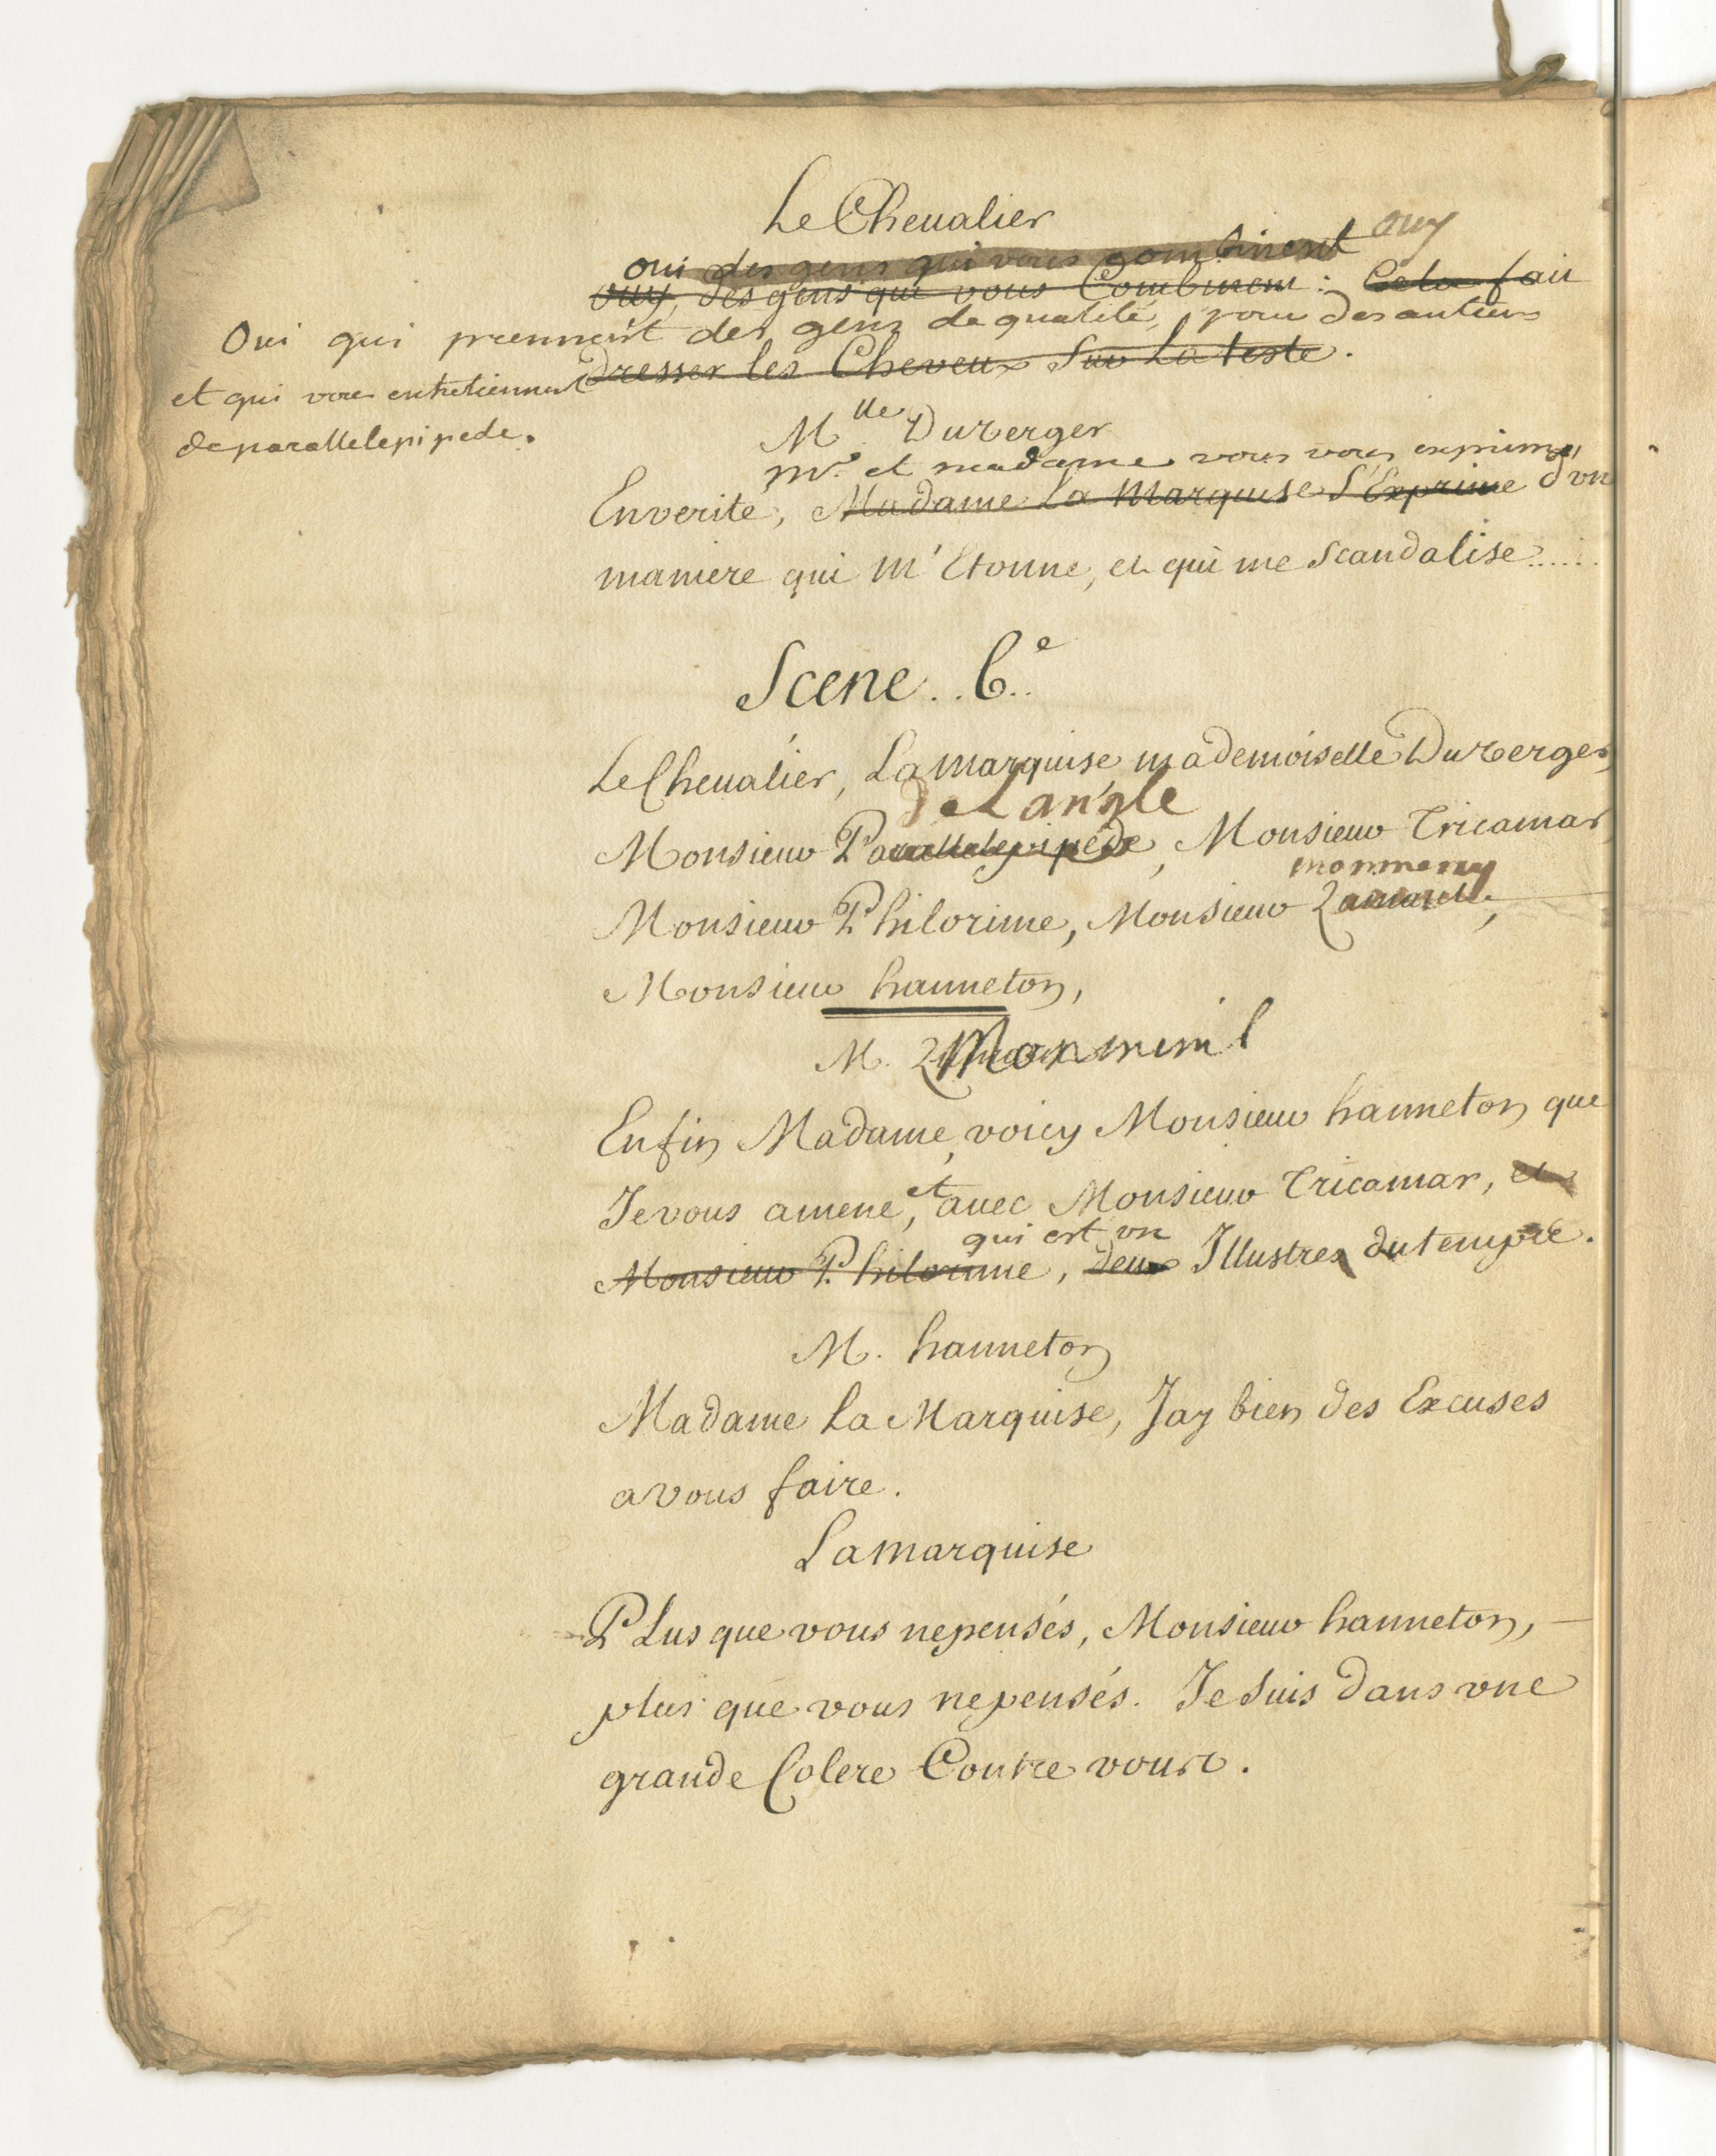 Le Cheualier
ouy
oui des gens qui vous combinent
ouy, des gens qui vous Combinent : Cela fait
Oui qui prennent des gens de qualité, pour des auteurs
dresser les Cheveux Sur La teste.
et qui vous entretiennent
de parallelepipede.
Mlle Duverger
mr. et madame vous vous exprimés
En verité, Madame La Marquise S'Exprime d'vn
maniere qui m'Etonne, et qui me Scandalise.....
Scene.. 6.e
Le Cheualier, La marquise, mademoiselle Duverger,
de Langle
Monsieur Parallelepipéde, Monsieur Tricamar
monmeny
Monsieur Philorime, Monsieur
Monsieur hanneton,
M. Monmenil
Enfin Madame, voicy Monsieur hanneton que
Je vous amene, et auec Monsieur Tricamar, et
qui est vn
Monsieur Philorime, deux Illustres du temps.
M. hanneton
Madame La Marquise, Jay bien des Excuses
a vous faire.
La marquise
PLus que vous ne pensés, Monsieur hanneton,
plus que vous ne pensés. Je Suis dans vne
grande Colere Contre vous.